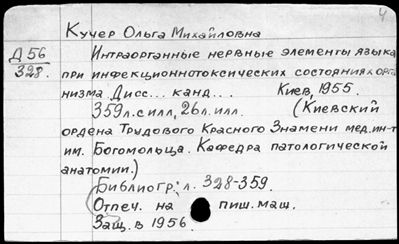 4
Кучер Ольга Михайловна
Д 56
328.
Интраорганные нервные элементы языка
при инфекционнотоксических состояниях орга-
низма. Дисс... канд... Киев, 1955.
359 л. с илл., 26 л. илл. (Киевский
ордена Трудового Красного Знамени мед. ин-т
им. Богомольца. Кафедра патологической
анатомии.)
Библиогр: л. 328-359.
Отпеч. на пиш. маш.
Защ. в 1956.